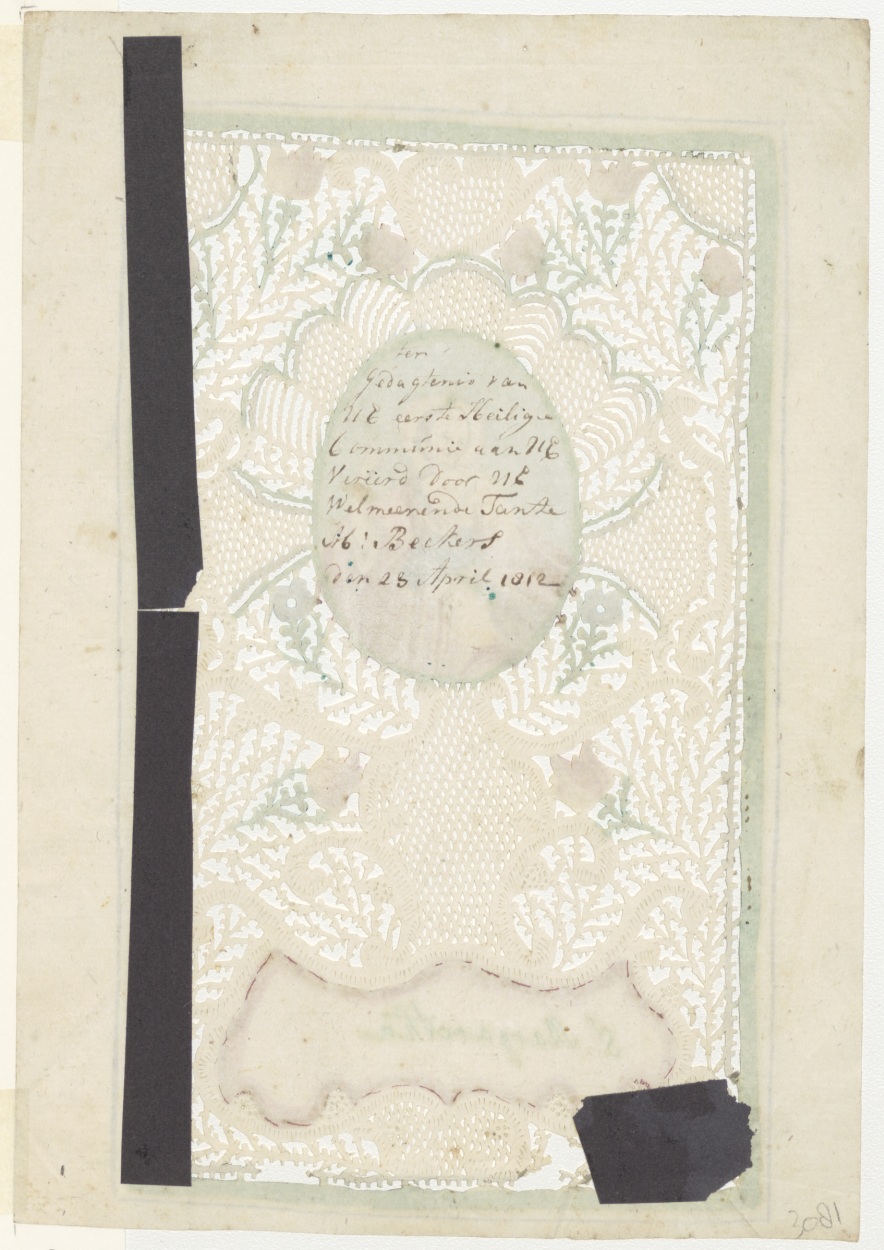 ter
Gedagtenis van
UE eerste Heilige
Communie aan UE
Veriierd Door UE
Welmeenende Tante
M: Beckers
Den 28 April 1812
S. Margaretha
3081